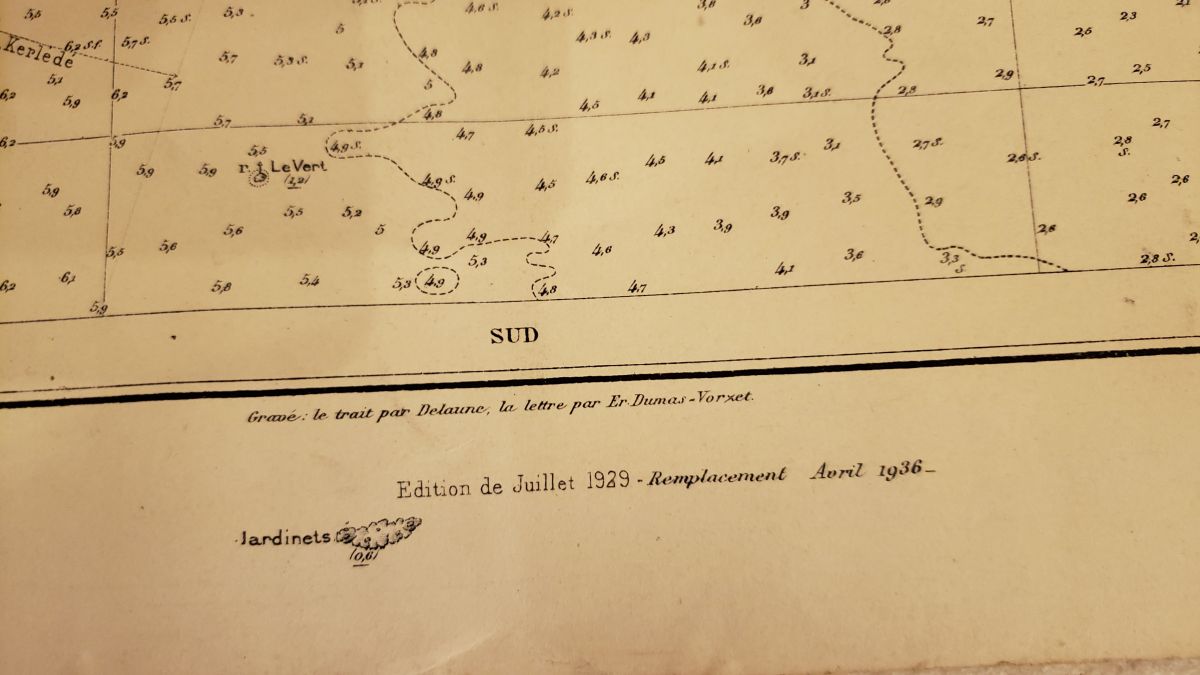 5,5 5,5 5,5 S. 5,3 4,6 S. 4,2 S. 3,6 3 2,7 2,3
5 4,3 S. 4,3 3,6 2,8 2,5
Kerlédé 6,2 S.f. 5,7 S. 5,7 5,3 S. 5,1 4,8 4,8 4,2 4,1 S. 3,1 2,9 2,7 2,5
6,2 5,1 5,9 6,2 5,7 5 4,5 4,1 4,1 3,6 3,1 S. 2,8
6,2 5,9 5,7 5,1 4,8 4,7 4,5 S. 2,7
5,5 4,9 S. 4,5 4,1 3,7 S. 3,1 2,7 S. 2,6 S. 2,8 S.
5,9 5,9 r. Le Vert
(1,2)
5,9 4,9 S. 4,9 4,5 4,6 S. 2,6
5,8 5,5 5,2 3,9 3,5 2,9 2,6
5,5 5,6 5,6 5 4,9 4,9 4,7 4,6 4,3 3,9 2,6
6,2 6,1 5,8 5,4 5,3 4,9 5,3 4,8 4,7 4,1 3,6 3,3 S. 2,8 S.
5,9
SUD
Gravé: le trait par Delaune, la lettre par Er. Dumas-Vorzet.
Edition de Juillet 1929 - Remplacement Avril 1936 -
Jardinets
(0,6)